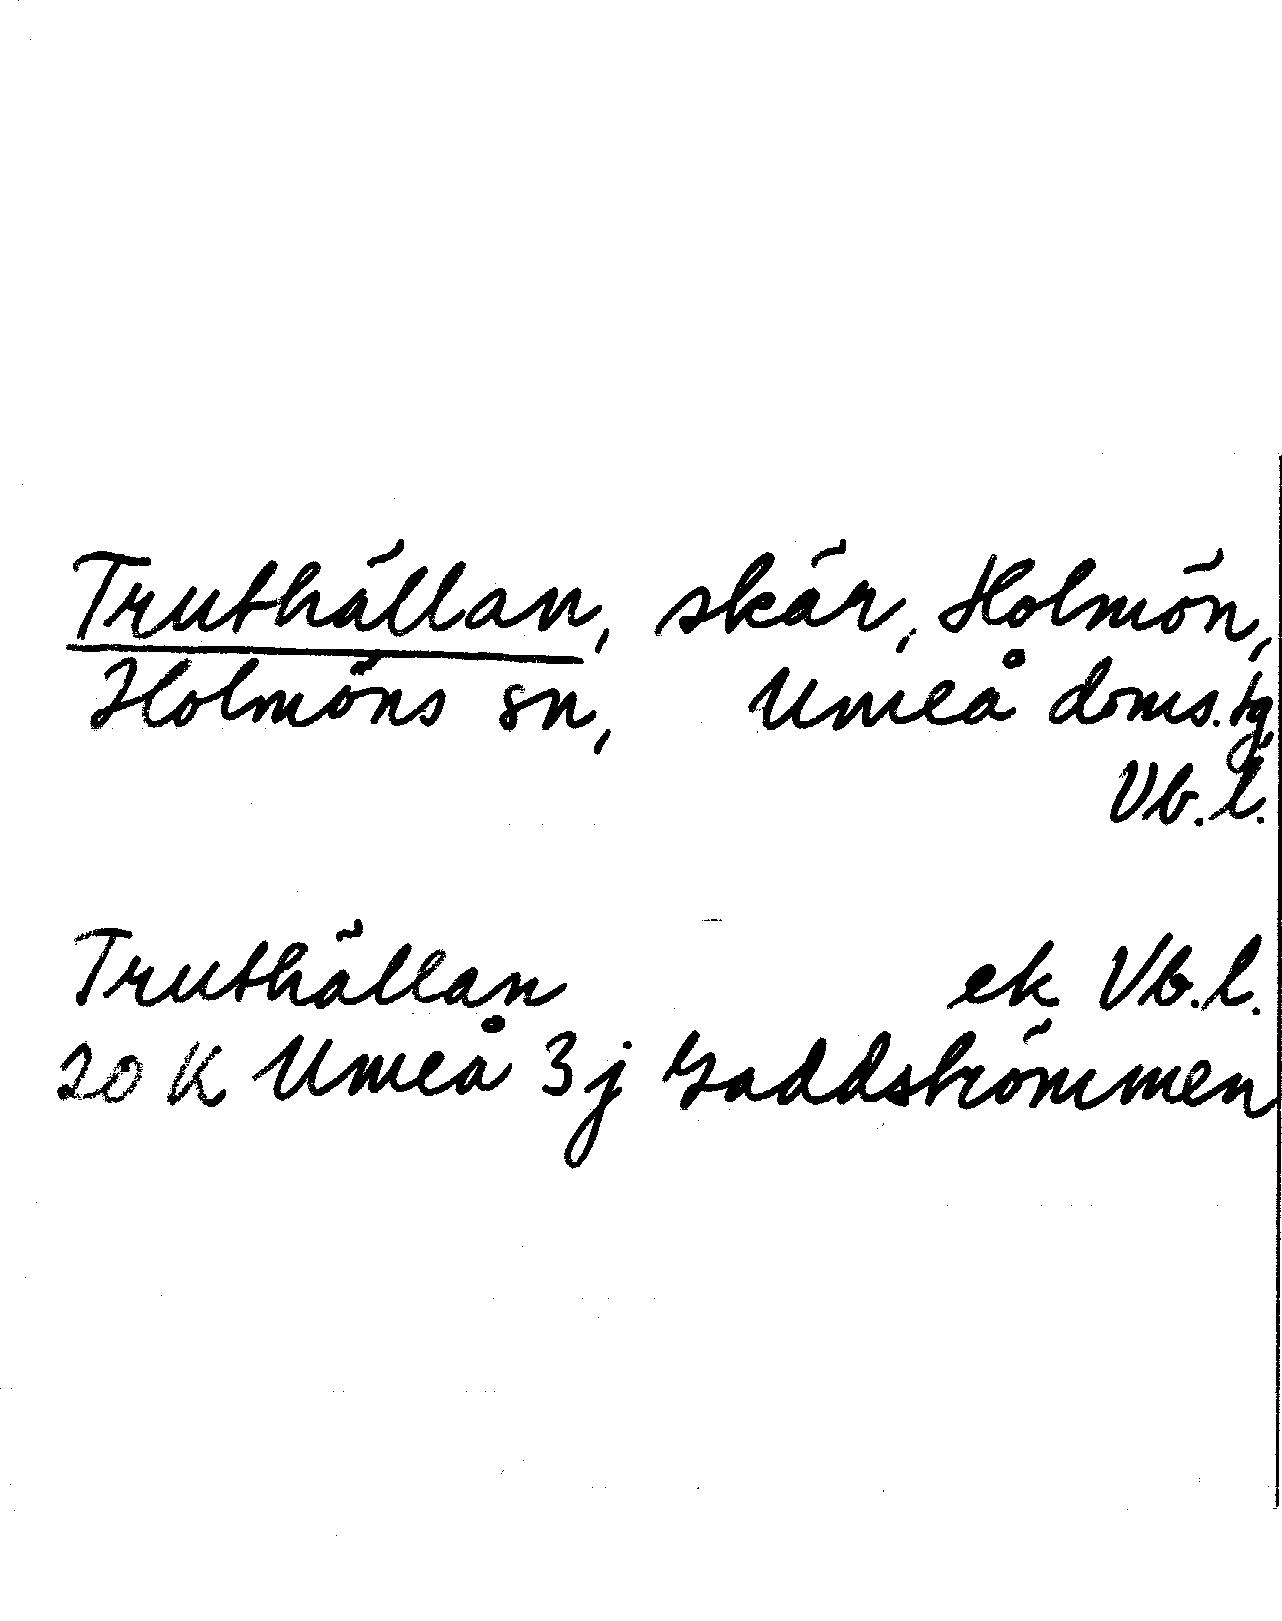 Truthällan, skär, Holmön,
Holmöns sn, Umeå doms.tg,
Vb.l.
Truthällan ek Vb.l.
20 K Umeå 3j Gaddströmmen